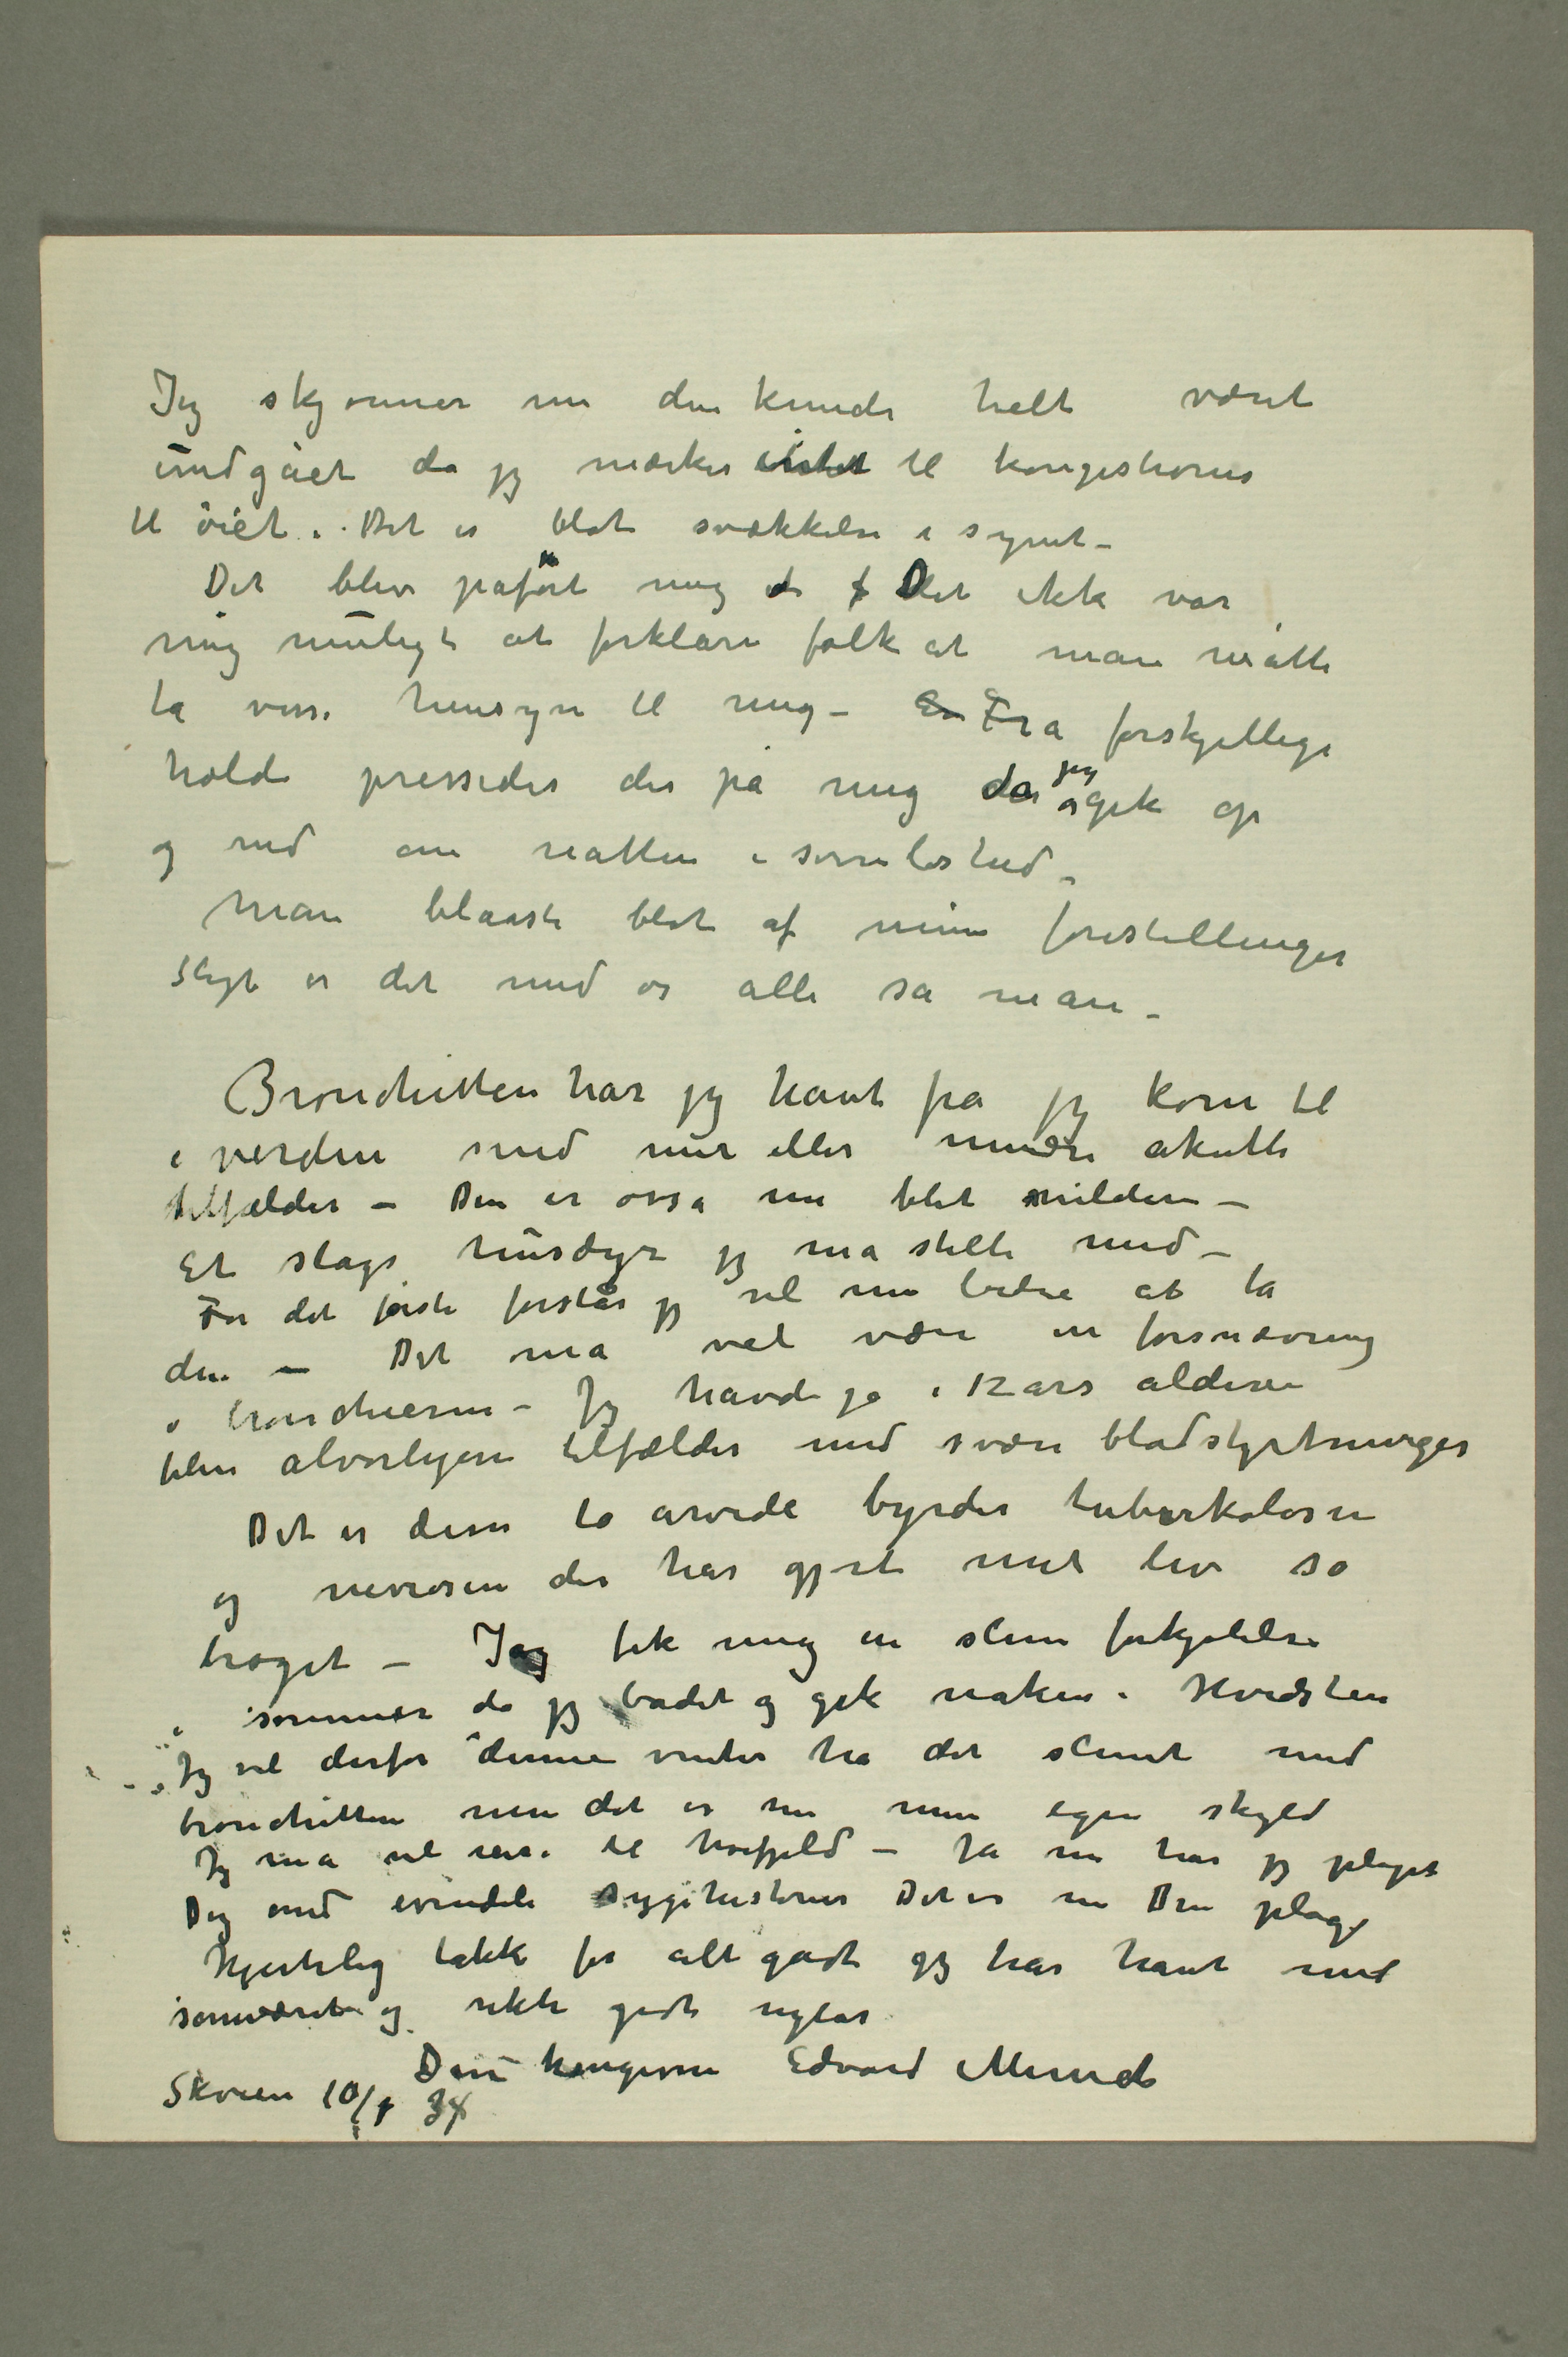 Jeg skjønner nu den kunde helt været
undgået da jeg mærker intet til kongestioner
til øiet. Det er blot svækkelse i synet –
Det blev påført mig da f Det ikke var
mig muligt at forklare folk at man måtte
ta visse hensyn til mig – En Fra forskjellige
hold pressedes der på mig da jeg gik op
og ned om natten i søvnløshed –
Man blaaste blot af mine forestillinger
Sligt er det med os alle sa man –
Bronchitten har jeg havt fra jeg kom til
i verden med mer eller mindre akutte
tilfælder – Den er osså nu blet mildere –
Et slags husdyr jeg må stelle med –
For det første forstår jeg vel nu bedre at ta
den – Det må vel være en forsnævring
i bronchierne – Jeg havde jo i 12 års alderen
blev alvorligere tilfælder med svære blodstyrtninger
Det er disse to arvede byrder tuberkolosen
og nevrosen der har gjort mit liv så
broget – Jeg fik mig en slem forkjølelse
i sommer da jeg badet og gik naken i Hvidsten
Jeg vil derfor denne vinter ha det slemt med
bronchitten men det er nu min egen skyld
Jeg må vel reise til høifjeld – Ja nu har jeg plaget
Dig med evindelige sygehistorier Det er nu Din plage
Hjertelig takk for alt godt jeg har havt med
samværet og rikti godt nytår
Din hengivne Edvard Munch
Skøien 10/1 34